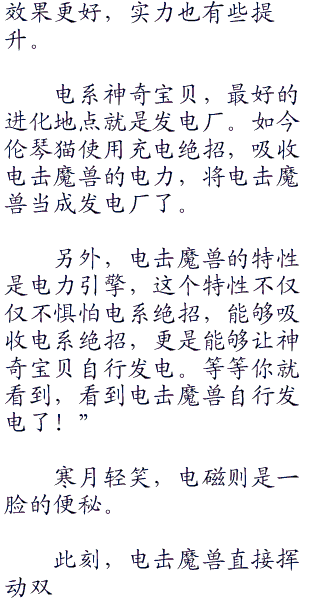 效果更好，实力也有些提
升。
电系神奇宝贝，最好的
进化地点就是发电厂。如今
伦琴猫使用充电绝招，吸收
电击魔兽的电力，将电击魔
兽当成发电厂了。
另外，电击魔兽的特性
是电力引擎，这个特性不仅
仅不惧怕电系绝招，能够吸
收电系绝招，更是能够让神
奇宝贝自行发电。等等你就
看到，看到电击魔兽自行发
电了！”
寒月轻笑，电磁则是一
脸的便秘。
此刻，电击魔兽直接挥
动双